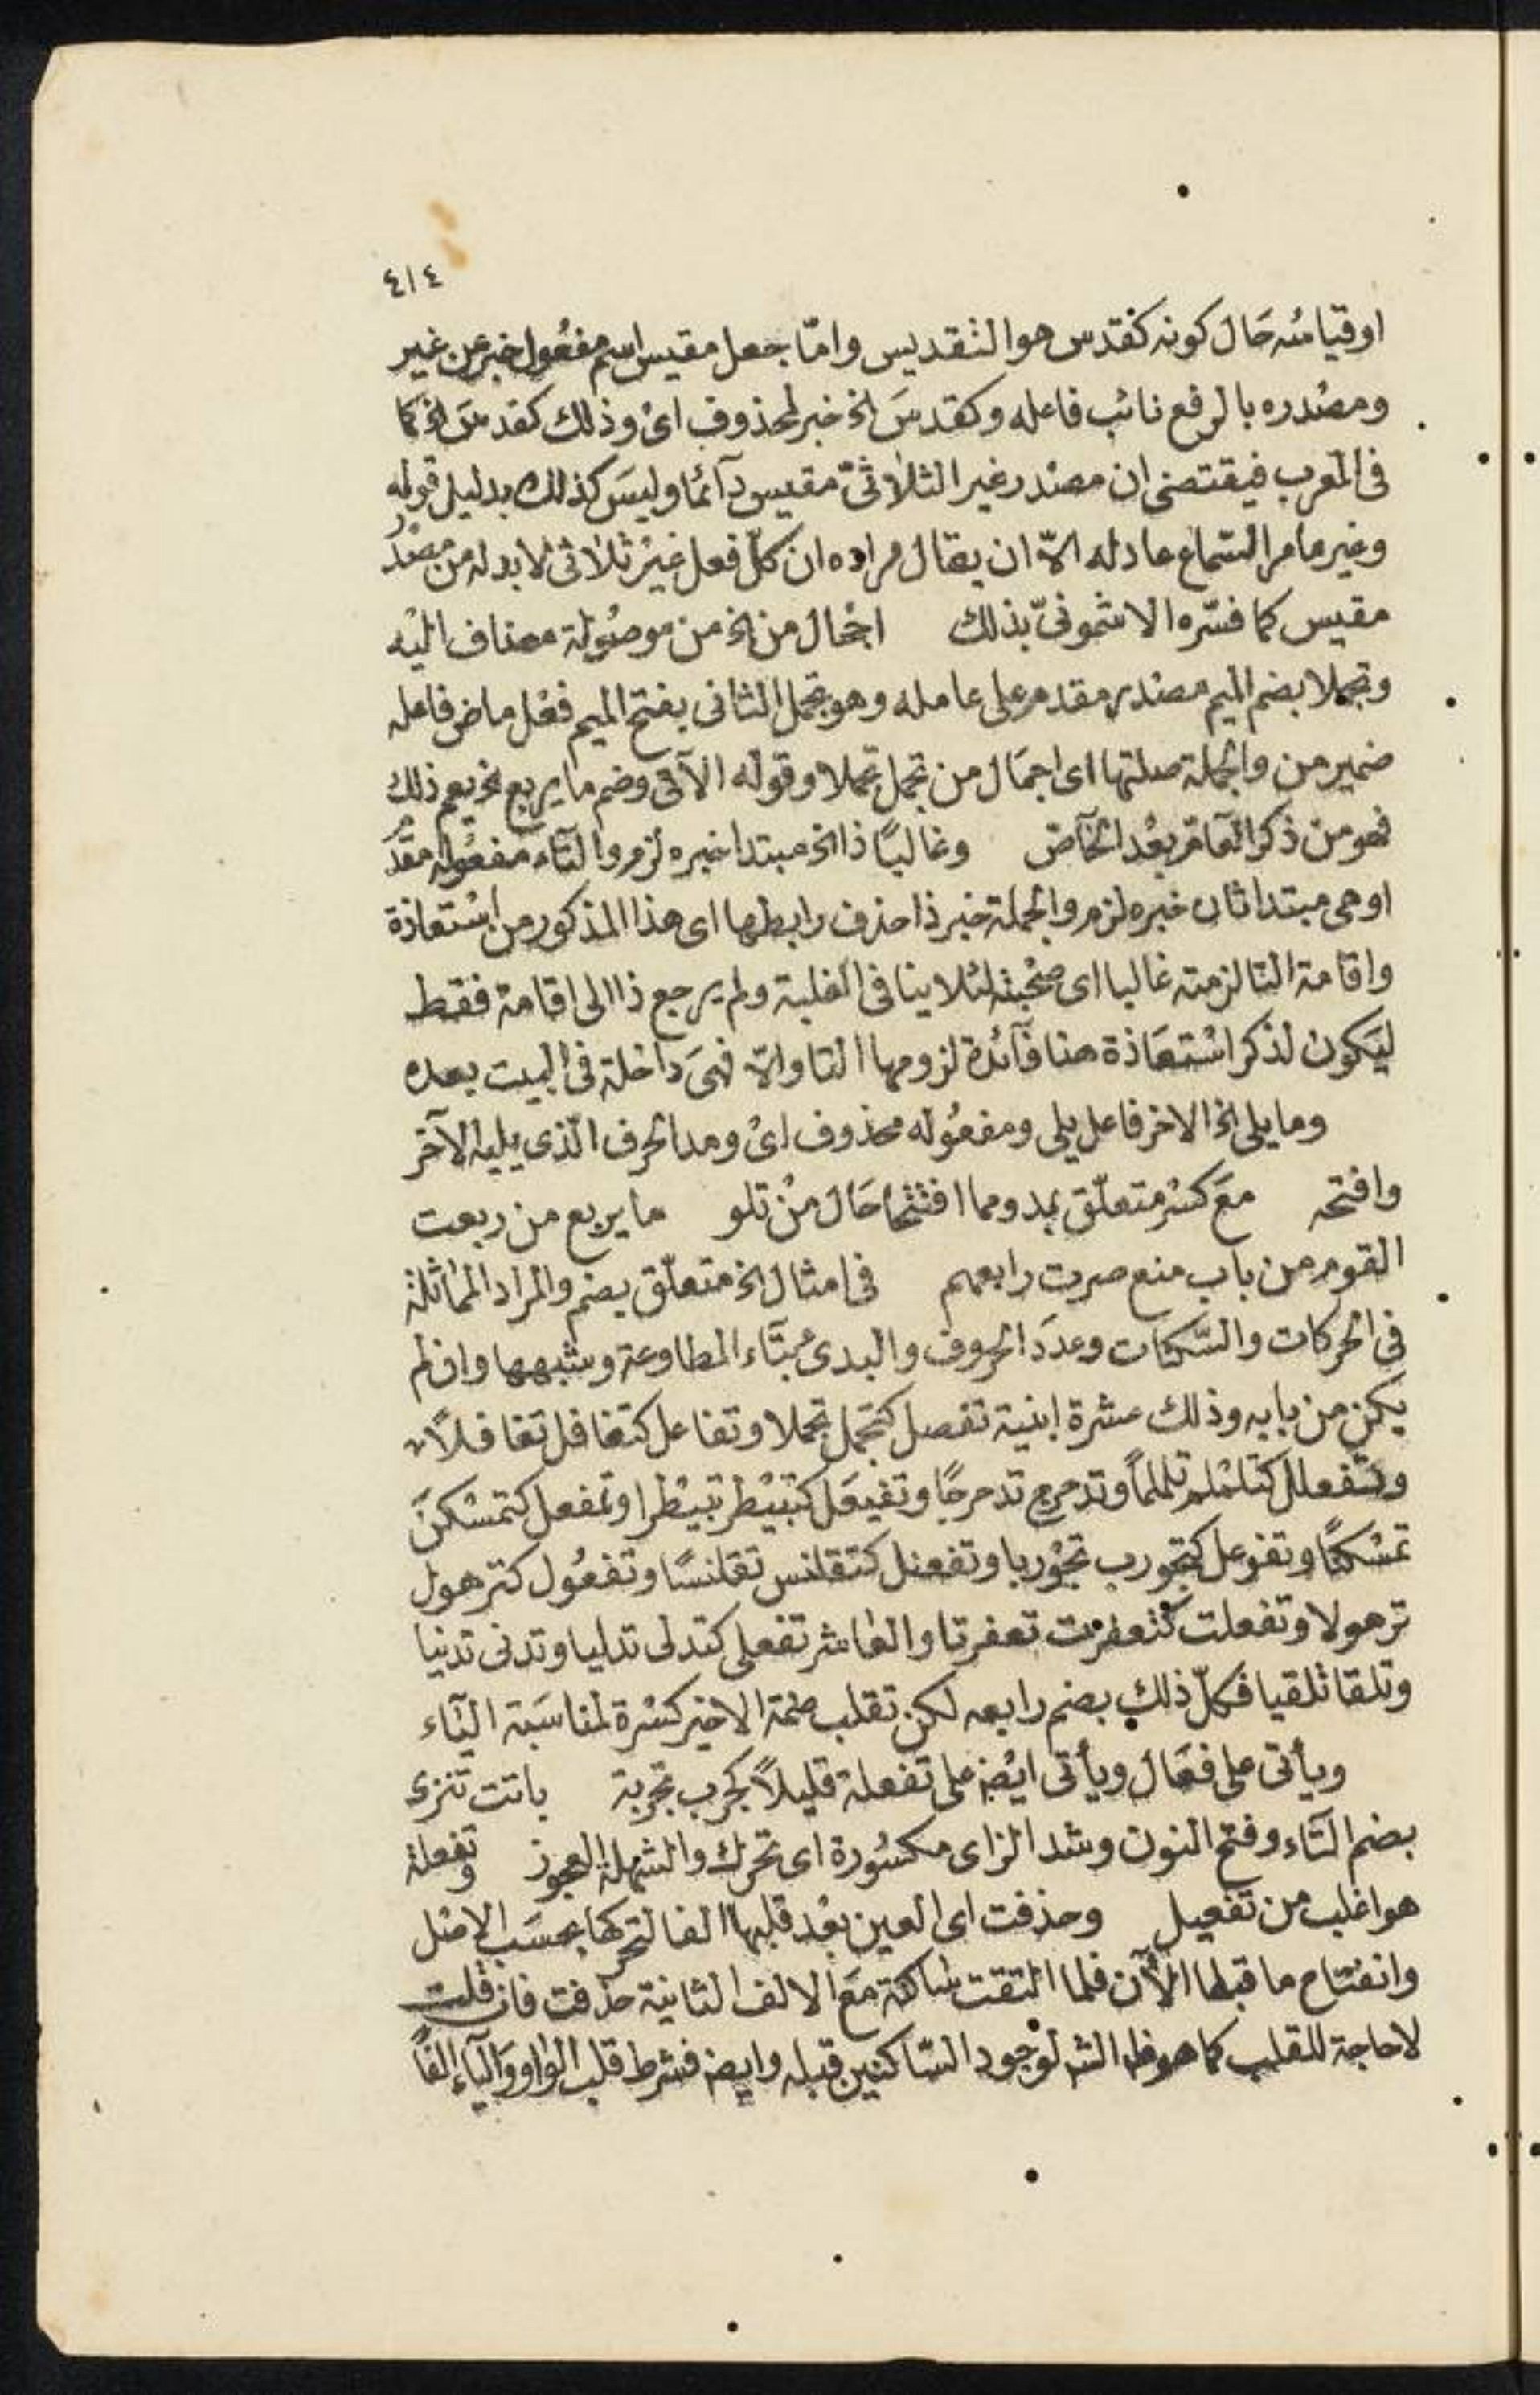 ٤١٤
او قيامه حَال كونه كقدس هو التقديس وامّا جعل مقيس اسم مفعُول خبر عن غير
ومصْدره بالرفع نائب فاعله وكقدسَ الخ خبر لمحذوف ائ وذلك كقدسَ الخ كما
فى المعرب فيقتضى ان مصْدر غير الثلاثىّ مقيس دآئما وليسَ كذلك بدليل قوله
وغير ما مر السّماع عادله الاّ ان يقال مراده ان كلّ فعل غيْر ثلاثى لا بد له من مصْدر
مقيس كما فسّره الاشمونىّ بذلك   اجْمال من الخ من موصُولة مضاف اليْه
وتجملا بضم الميم مصْدر مقدم على عامله وهو تجمل الثانى بفتح الميم فعْل ماض فاعله
ضمير من والجملة صلتها اى اجمَال من تجمل تجملا وقوله الآتى وضم ما يربع الخ يعم ذلك
فهو من ذكر العَام بعْد الخآص   وغالبًا ذا الخ مبتدا خبره لزم والتاء مفعُوله مقدّم
او هى مبتدا ثان خبره لزم والجملة خبر ذا حذف رابطها اى هذا المذكور من اسْتعاذة
واقامة التا لزمته غالبا اى صحْبته لئلا ينافى الغلبة ولم يرجع ذا الى اقامة فقط
ليَكون لذكر اسْتعَاذة هنا فآئدة لزومها التا والاّ فهىَ داخلة فى البيت بعده
وما يلى الخ الاخر فاعل يلى ومفعُوله محذوف ائ ومد الحرف الّذى يليه الآخر
وافتحه   معَ كسْر متعلّق بمد ومما افتتحا حَال منْ تلو   ما يربع من ربعت
القوم من باب منع صرت رابعهم   فى امثال الخ متعلّق بضم والمراد المماثلة
فى الحركات والسّكنات وعددَ الحروف والبدئ بتاء المطاوعة وشبهها وان لم
يكن من بابه وذلك عشرة ابنية تفعل كتجمل تجملا وتفاعل كتغافل تغافلاً
وتفعلل كتلملم تلملماً وتدحرج تدحرجًا وتفيعَل كتبيْطر تبيْطرا وتمفعل كتمسْكنَ
تمسْكنًا وتفوعل كتجورب تجوْربا وتفعنل كتقلنس تقلنسًا وتفعُول كترهول
ترهولا وتفعلت كتعفرت تعفرتا والعاشر تفعلى كتدلى تدليا وتدنى تدنيا
وتلقا تلقيا فكلّ ذلك بضم رابعه لكن تقلب ضمة الاخير كسْرة لمناسَبة اليَاء
ويأتى على فعَال ويأتى ايْضا على تفعلة قليلاً كجرب تجربة   باتت تنزى
بضم التَاء وفتح النون وشد الزاى مكسُورة اى تحرك والشهلة العجوز   وتفعلة
هو اغلب من تفعيل   وحذفت اى العين بعْد قلبها الفا لتحركها بحسَب الاصْل
وانفتاح ما قبلها الآن فلما التقت ساكنة معَ الالف الثانية حذفت فان قلت
لا حاجة للقلب كما هو ظ الش لوجود السّاكنين قبله وايض فشرط قلب الواو واليَاء الفًا